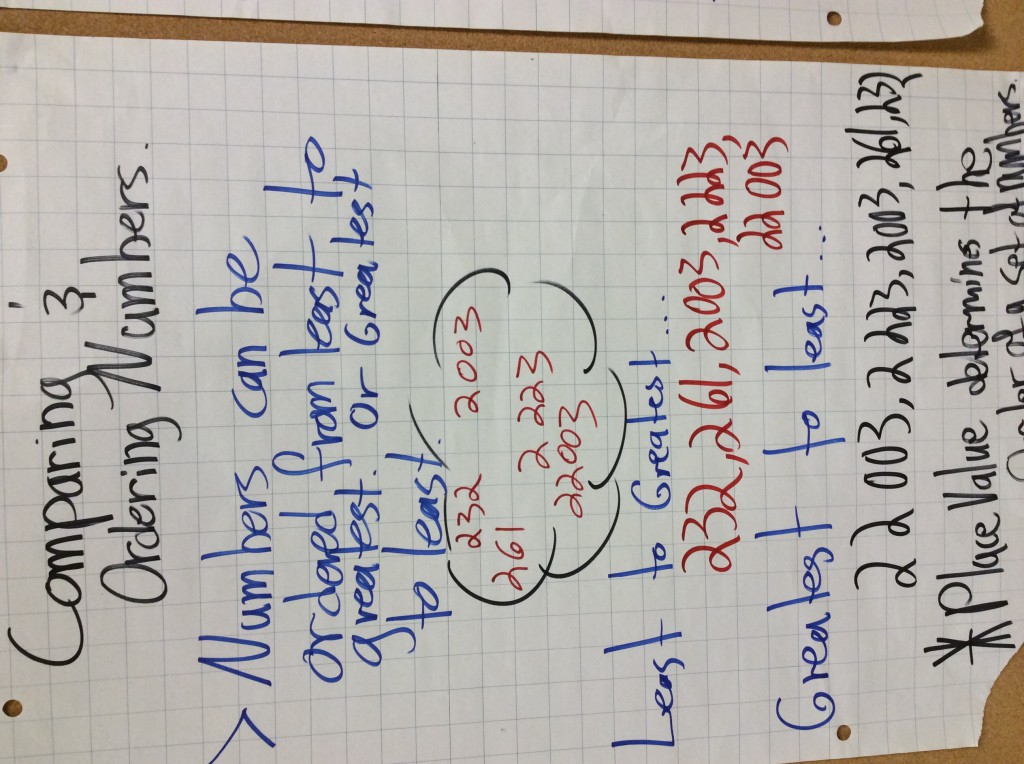 Comparing
&
Ordering Numbers.
> Numbers can be
ordered from least to
greatest. Or Greatest
to least.
232 2003
261
2 223
22003
Least to Greatest...
232, 261, 2003, 2223,
22 003
Greatest to least...
22 003, 2 223, 2003, 261, 232
*Place Value determines the
Order of a set of numbers.